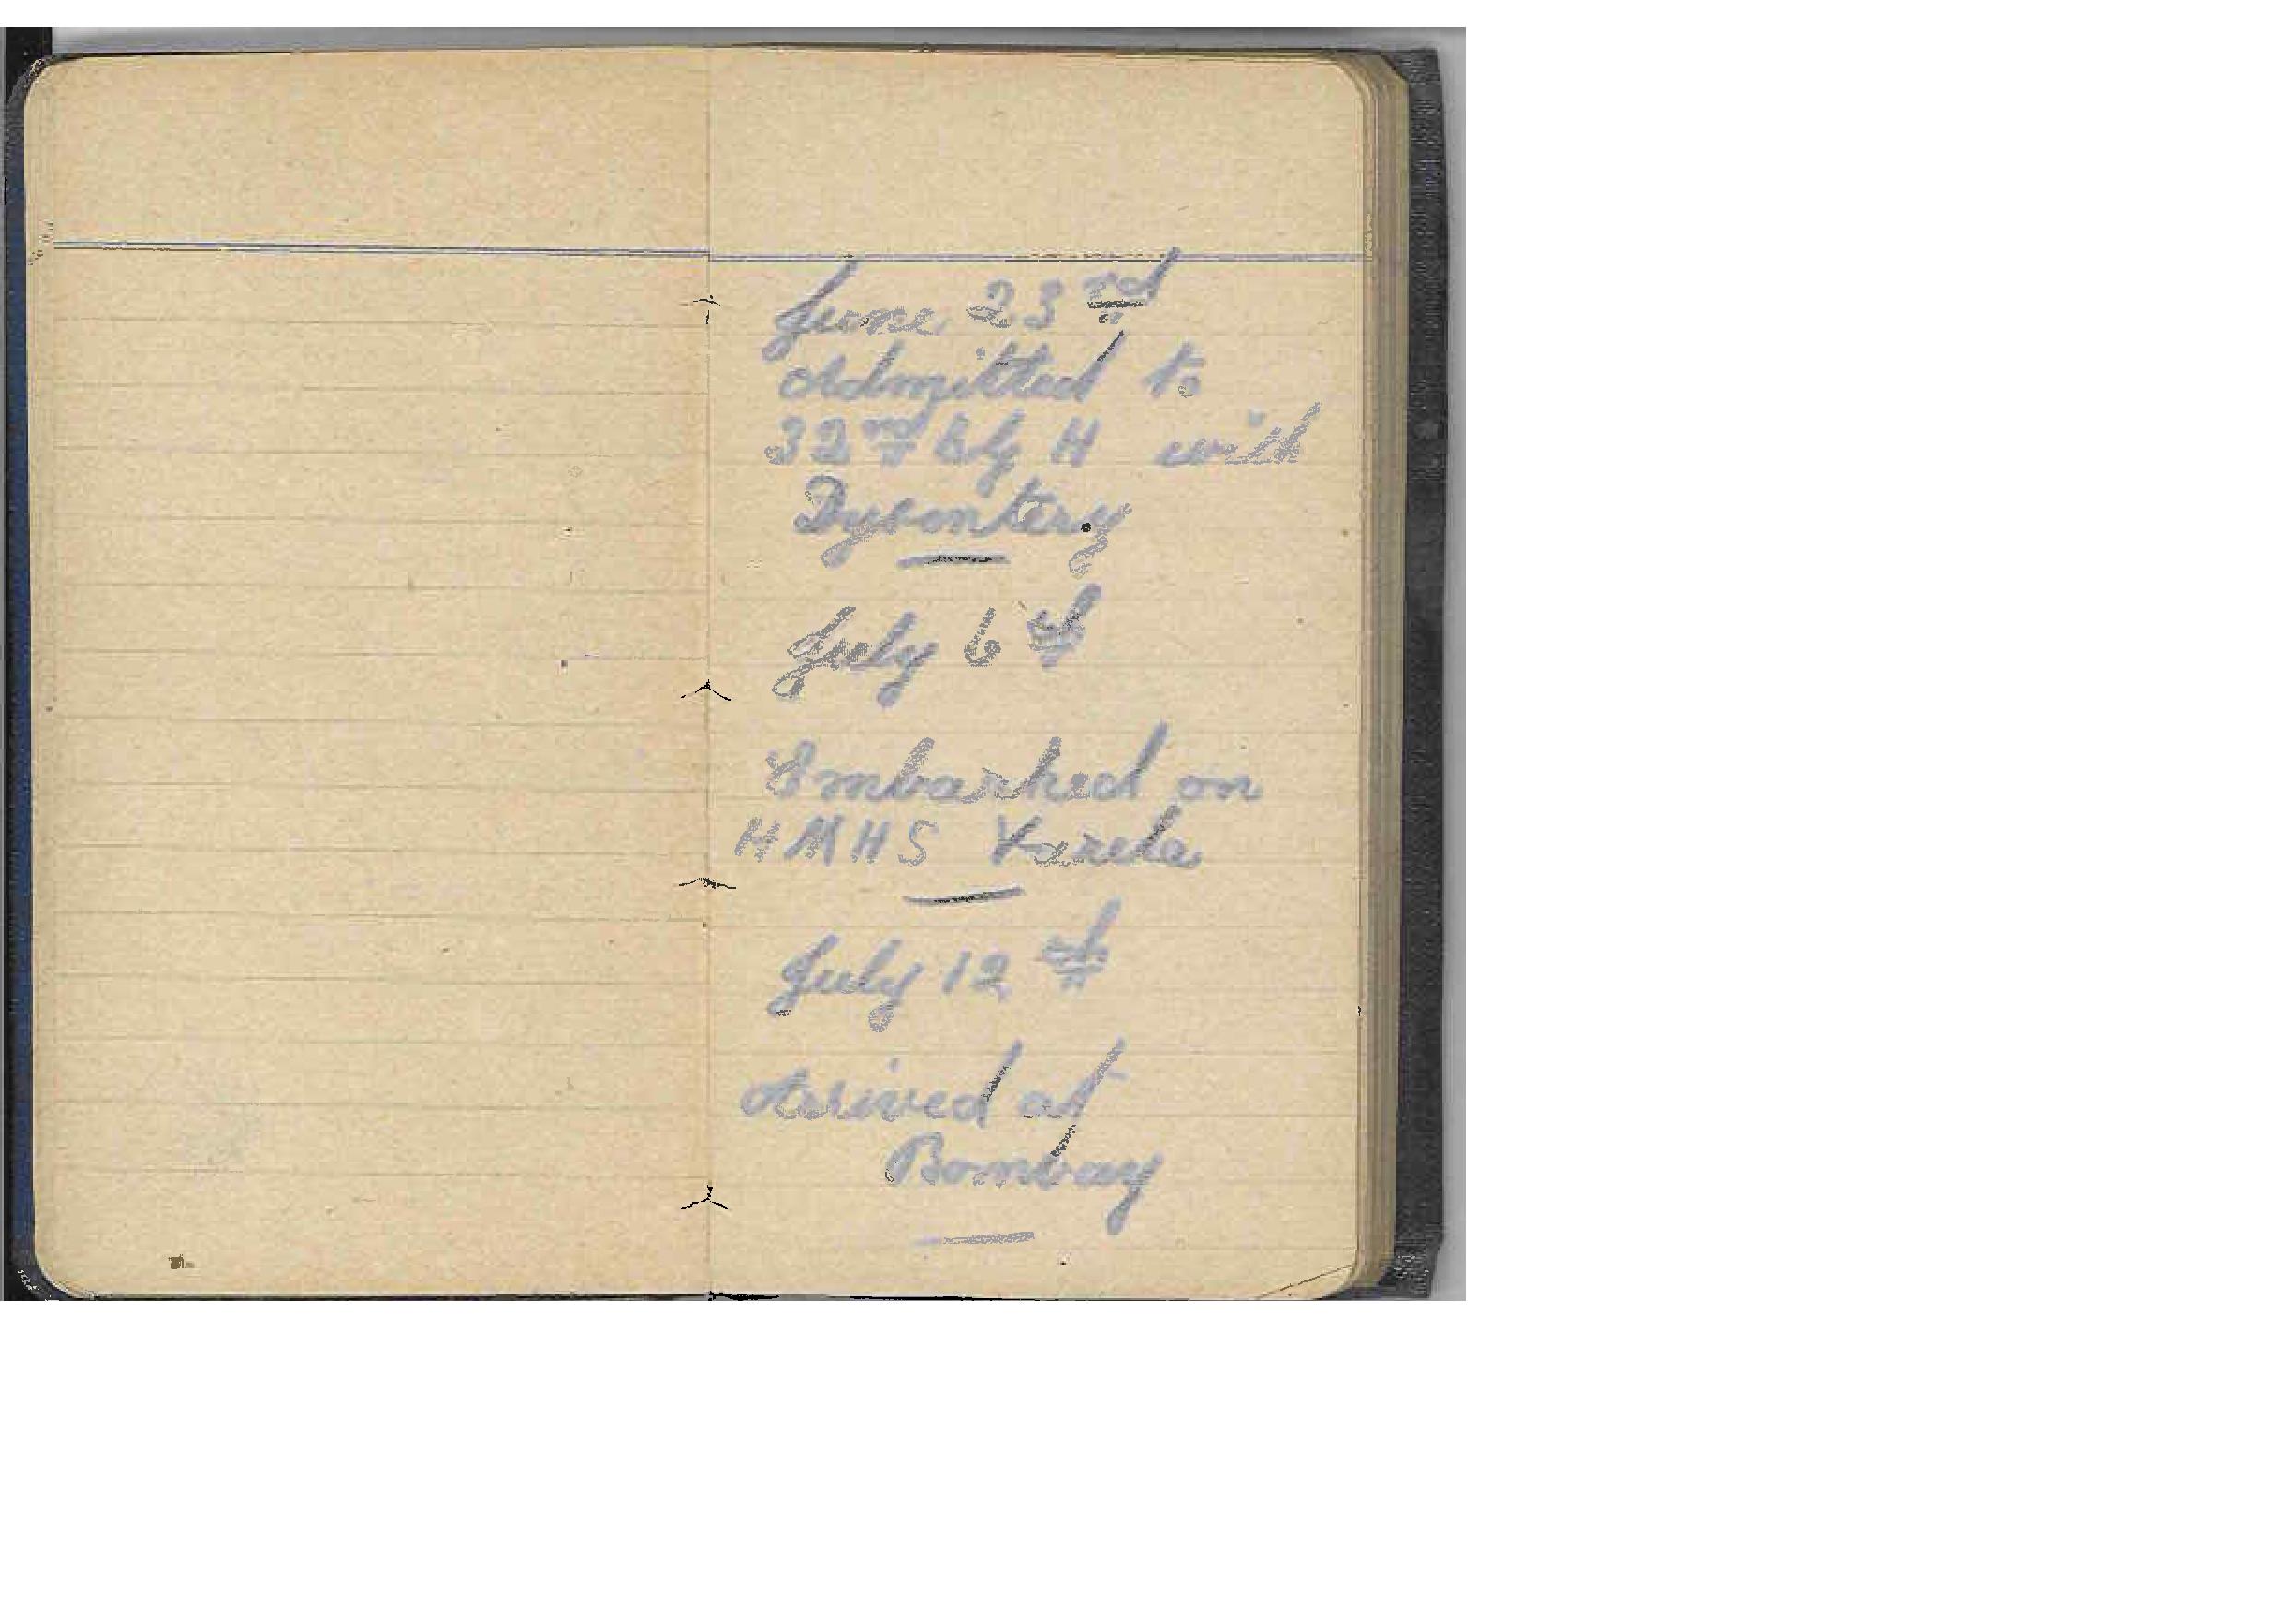 June 23rd
Admitted to
32nd H with
Dysentery
July 6th
Embarked on
HMHS Varela
July 12th
Arrived at
Bombay